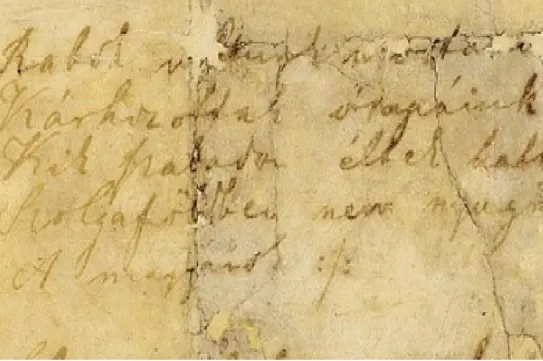 Rabok voltunk mostan
Kárhozottak ősapáink
Kik szabadon éltek hal
Szolgaföldben nem nyug
A magyarok :/: